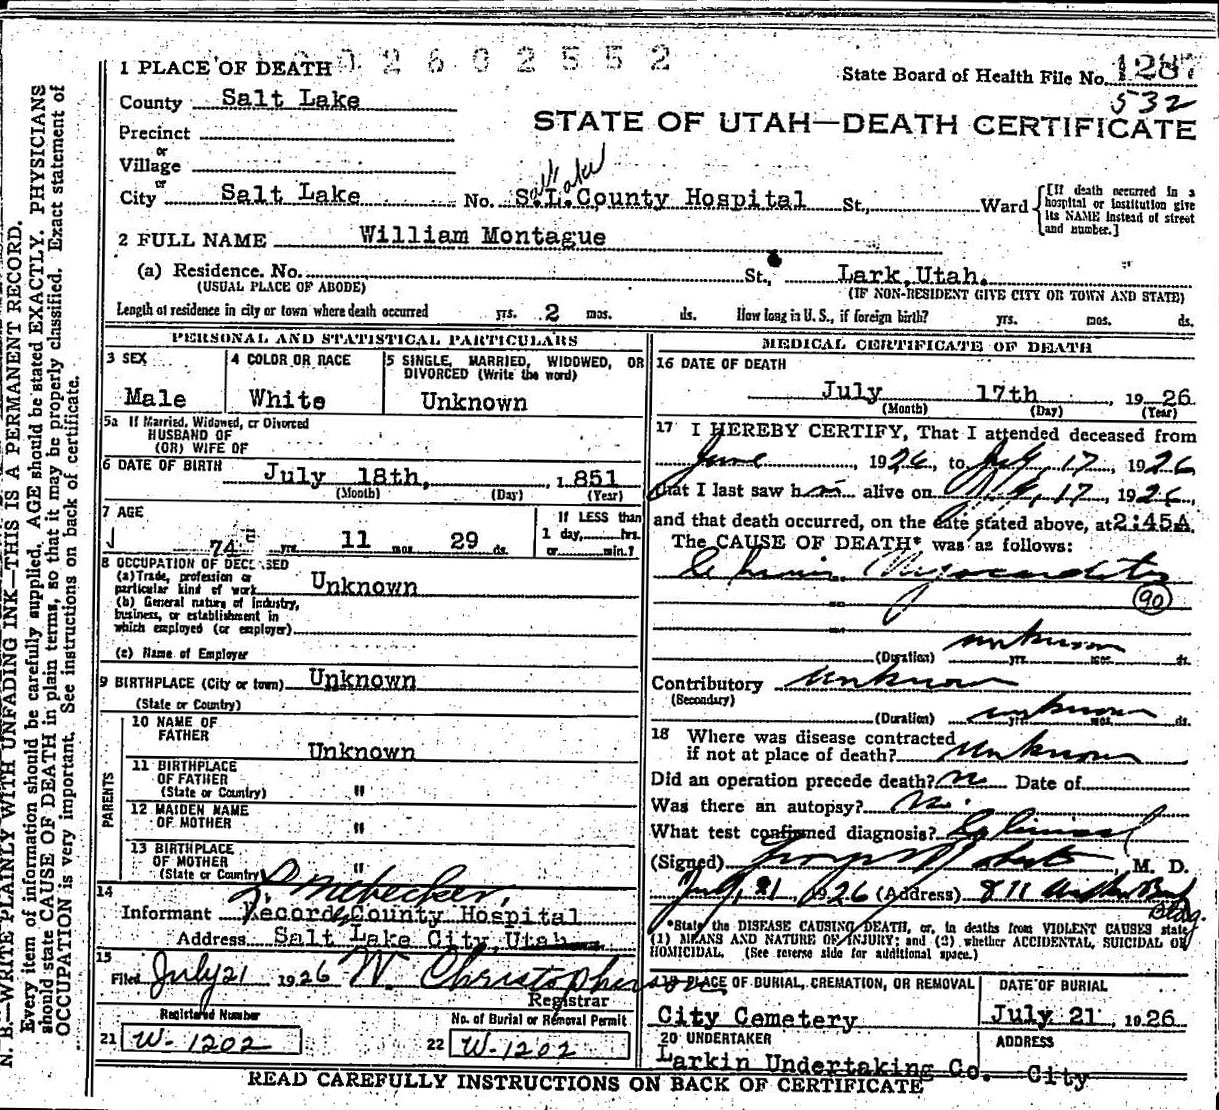 2602552
1 PLACE OF DEATH
State Board of Health File No. 1287
532
County Salt Lake
STATE OF UTAH—DEATH CERTIFICATE
Precinct
or
Village
or
City Salt Lake No. S.L. County Hospital St., Ward
Salt Lake
[If death occurred in a hospital or institution give its NAME instead of street and number.]
2 FULL NAME William Montague
(a) Residence. No. St., Lark, Utah.
(USUAL PLACE OF ABODE) (IF NON-RESIDENT GIVE CITY OR TOWN AND STATE)
Length of residence in city or town where death occurred yrs. 2 mos. ds. How long in U. S., if foreign birth? yrs. mos. ds.
PERSONAL AND STATISTICAL PARTICULARS
3 SEX
Male
4 COLOR OR RACE
White
5 SINGLE, MARRIED, WIDOWED, OR DIVORCED (Write the word)
Unknown
5a If Married, Widowed, or Divorced
HUSBAND OF
(OR) WIFE OF
6 DATE OF BIRTH July 18th, 1851
(Month) (Day) (Year)
7 AGE
74 yrs. 11 mos. 29 ds.
If LESS than
1 day, hrs.
or min.?
8 OCCUPATION OF DECEASED
(a) Trade, profession or
particular kind of work Unknown
(b) General nature of industry,
business, or establishment in
which employed (or employer)
(c) Name of Employer
9 BIRTHPLACE (City or town) Unknown
(State or Country)
PARENTS
10 NAME OF
FATHER Unknown
11 BIRTHPLACE
OF FATHER
(State or Country) "
12 MAIDEN NAME
OF MOTHER "
13 BIRTHPLACE
OF MOTHER
(State or Country) "
14
Informant Records County Hospital
Address Salt Lake City, Utah
15
Filed July 21 1926 W. Christopherson
Registrar
Registered Number
21 W-1202
No. of Burial or Removal Permit
22 W-1202
MEDICAL CERTIFICATE OF DEATH
16 DATE OF DEATH
July 17th, 1926
(Month) (Day) (Year)
17 I HEREBY CERTIFY, That I attended deceased from
June, 1926, to July 17, 1926
that I last saw him alive on July 17, 1926,
and that death occurred, on the date stated above, at 2:45A
The CAUSE OF DEATH* was as follows:
Chronic Myocarditis
90
unknown
(Duration) yrs. mos. ds.
Contributory unknown
(Secondary)
(Duration) unknown yrs. mos. ds.
18 Where was disease contracted
if not at place of death? unknown
Did an operation precede death? no Date of
Was there an autopsy? No.
What test confirmed diagnosis? Clinical
(Signed) George N Roberts, M. D.
July 21 1926 (Address) 811 Bldg.
*State the DISEASE CAUSING DEATH, or, in deaths from VIOLENT CAUSES state
(1) MEANS AND NATURE OF INJURY; and (2) whether ACCIDENTAL, SUICIDAL OR
HOMICIDAL. (See reverse side for additional space.)
19 PLACE OF BURIAL, CREMATION, OR REMOVAL
City Cemetery
DATE OF BURIAL
July 21, 1926
20 UNDERTAKER
Larkin Undertaking Co.
ADDRESS
City
READ CAREFULLY INSTRUCTIONS ON BACK OF CERTIFICATE
N. B.—WRITE PLAINLY WITH UNFADING INK—THIS IS A PERMANENT RECORD.
Every item of information should be carefully supplied. AGE should be stated EXACTLY. PHYSICIANS
should state CAUSE OF DEATH in plain terms, so that it may be properly classified. Exact statement of
OCCUPATION is very important. See instructions on back of certificate.